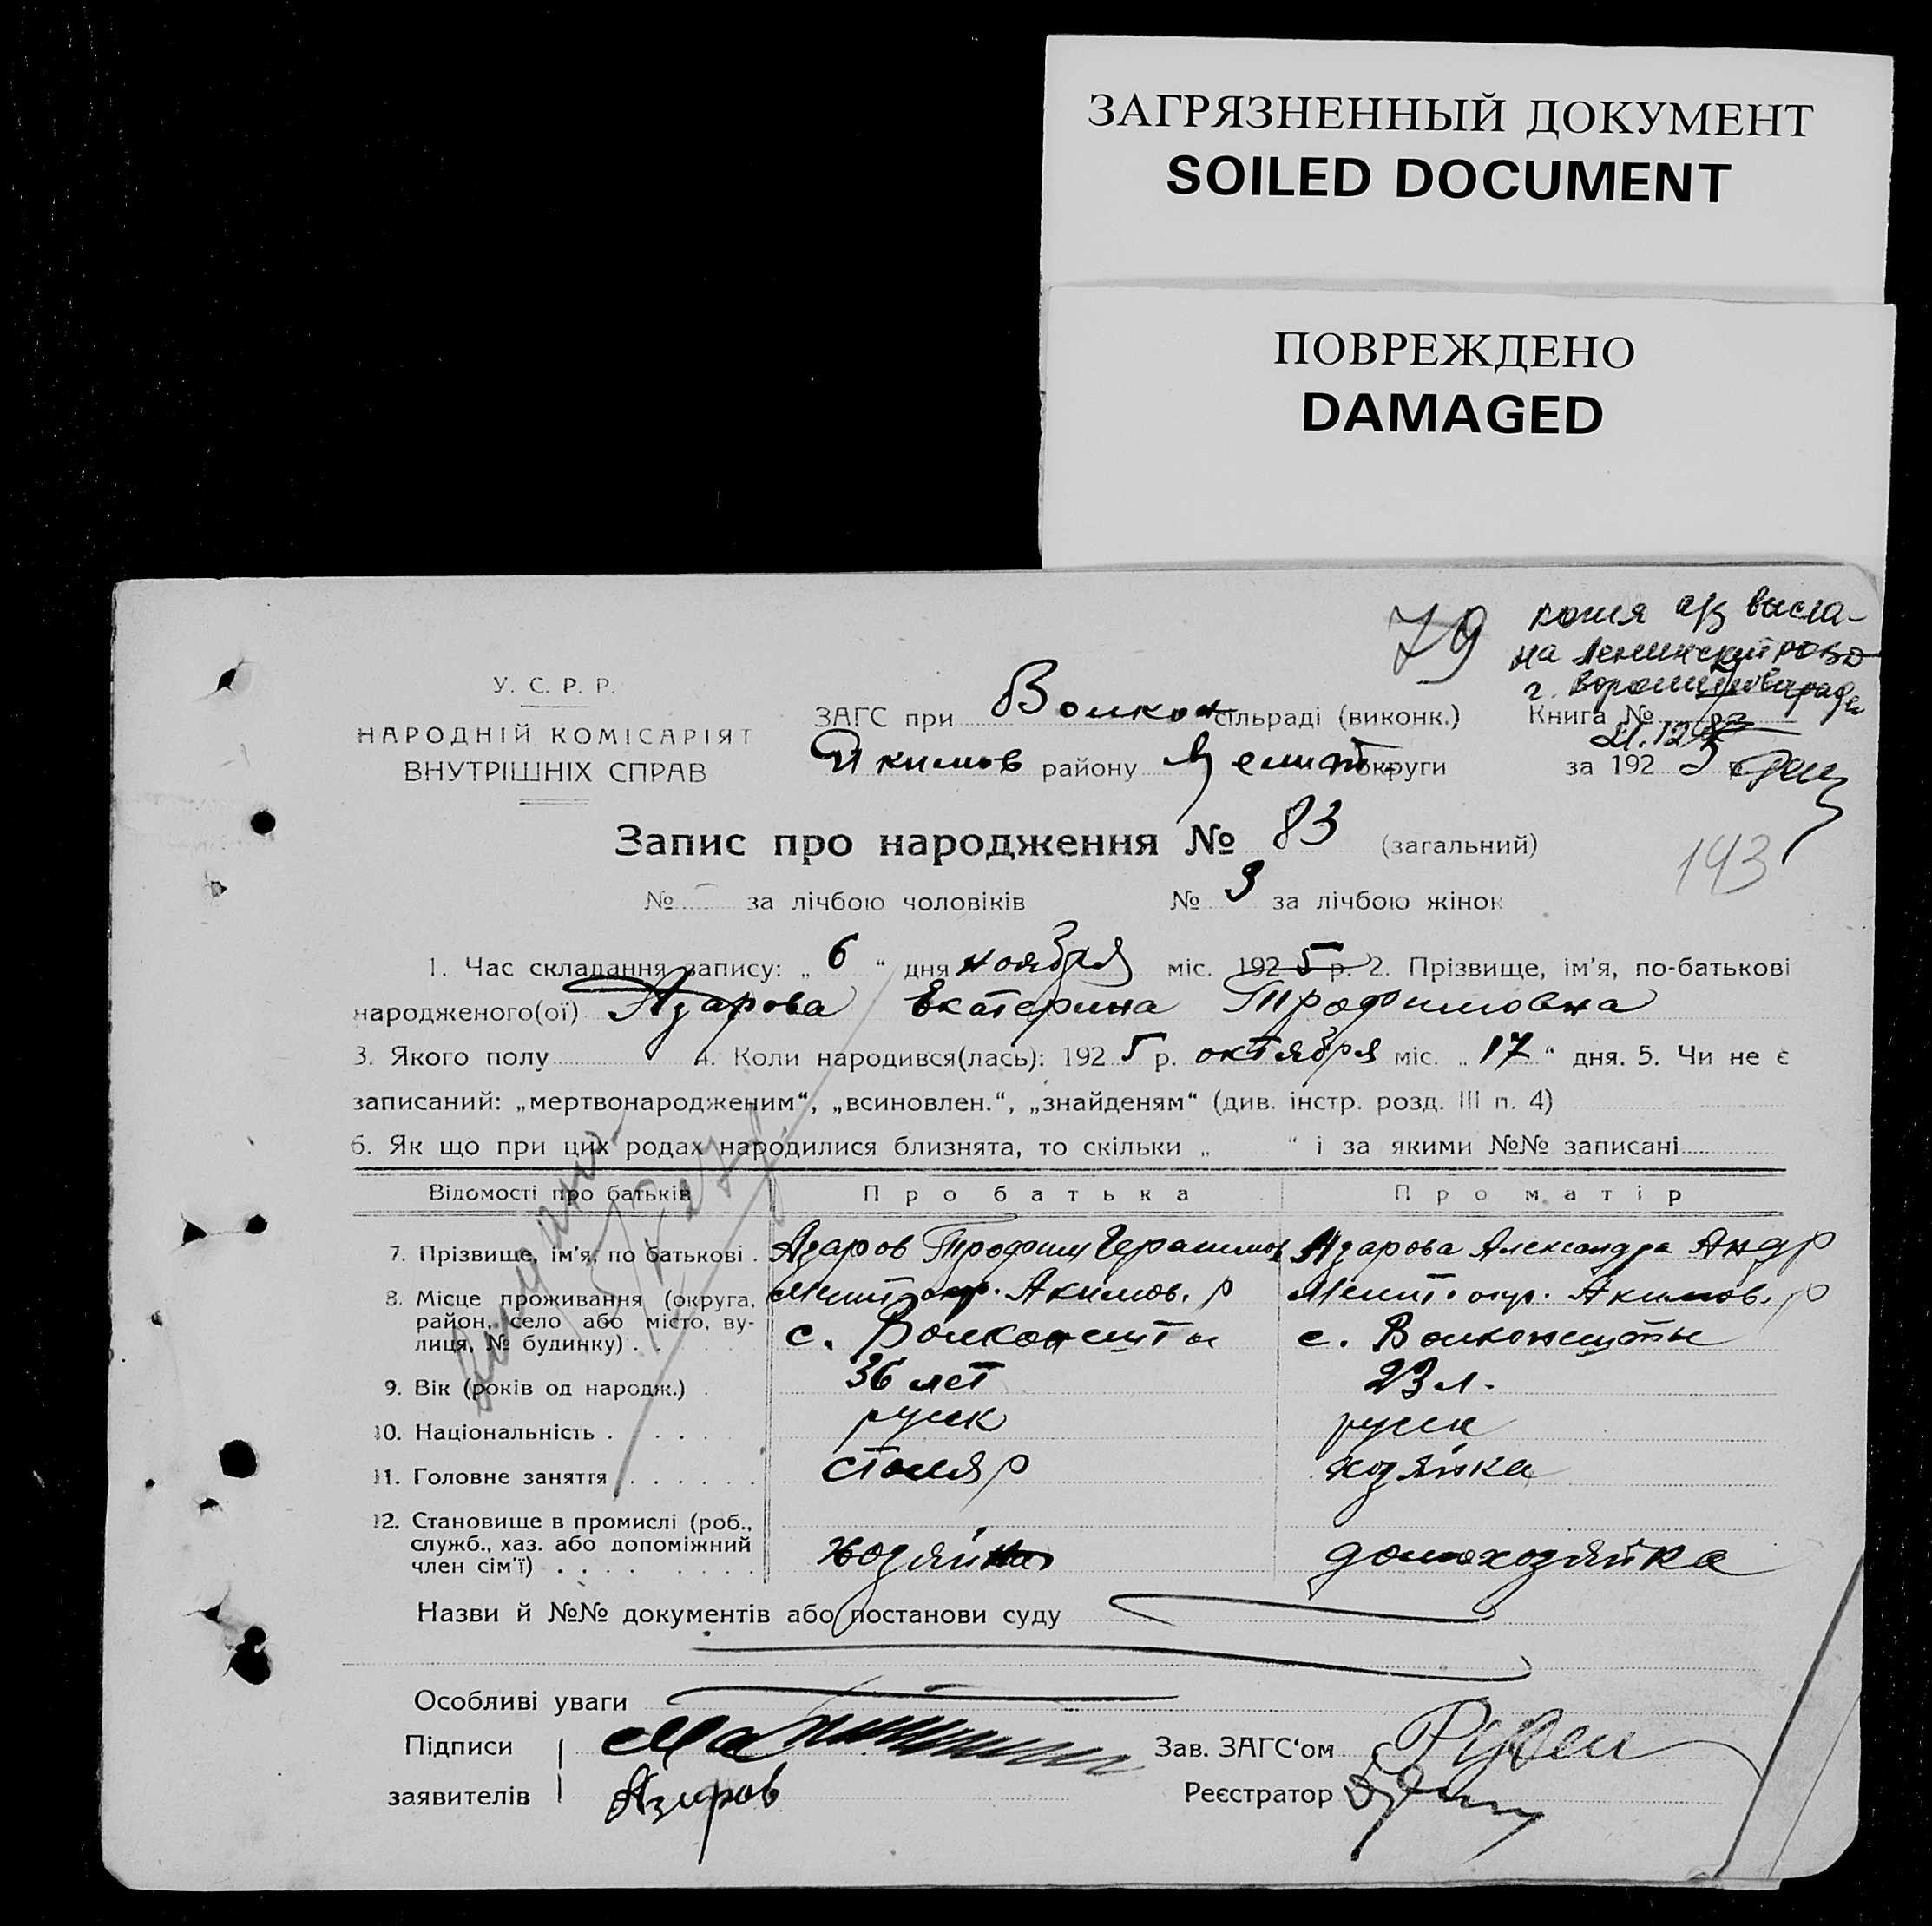 ЗАГРЯЗНЕННЫЙ ДОКУМЕНТ
SOILED DOCUMENT
ПОВРЕЖДЕНО
DAMAGED
79
копия а/з высла-
на Ленинский
г. Ворошиловграда
У. С. Р. Р.
НАРОДНІЙ КОМІСАРІЯТ
ВНУТРІШНІХ СПРАВ
ЗАГС при Волкон сільраді (виконк.) Книга №
Якимов району Мелит. округи за 192 5
Запис про народження № 83 (загальний)
143
№ – за лічбою чоловіків № 3 за лічбою жінок
1. Час складання запису: „ 6 “ дня ноября міс. 192 5 р. 2. Прізвище, ім'я, по-батькові
народженого(ої) Азарова Екатерина Трофимовна
3. Якого полу 4. Коли народився(лась): 192 5 р. октября міс. „ 17 “ дня. 5. Чи не є
записаний: „мертвонародженим“, „всиновлен.“, „знайденям“ (див. інстр. розд. III п. 4)
6. Як що при цих родах народилися близнята, то скільки „ “ і за якими №№ записані
Відомості про батьків Про батька Про матір
7. Прізвище, ім'я, по батькові . Азаров Трофим Герасимов Азарова Александра Андр
8. Місце проживання (округа, Мелит. окр. Акимов. р Мелит. окр. Акимов. р
район, село або місто, ву-
лиця, № будинку) . . с. Волконешты с. Волконешты
9. Вік (років од народж.) . 36 лет 23 л.
10. Національність . . . . . русск русск
11. Головне заняття . . . . . . столяр хозяйка
12. Становище в промислі (роб.,
служб., хаз. або допоміжний
член сім'ї) . . . . . . . . хозяин домохозяйка
Назви й №№ документів або постанови суду
Особливі уваги
Підписи Зав. ЗАГС‘ом
заявителів Азаров Реєстратор